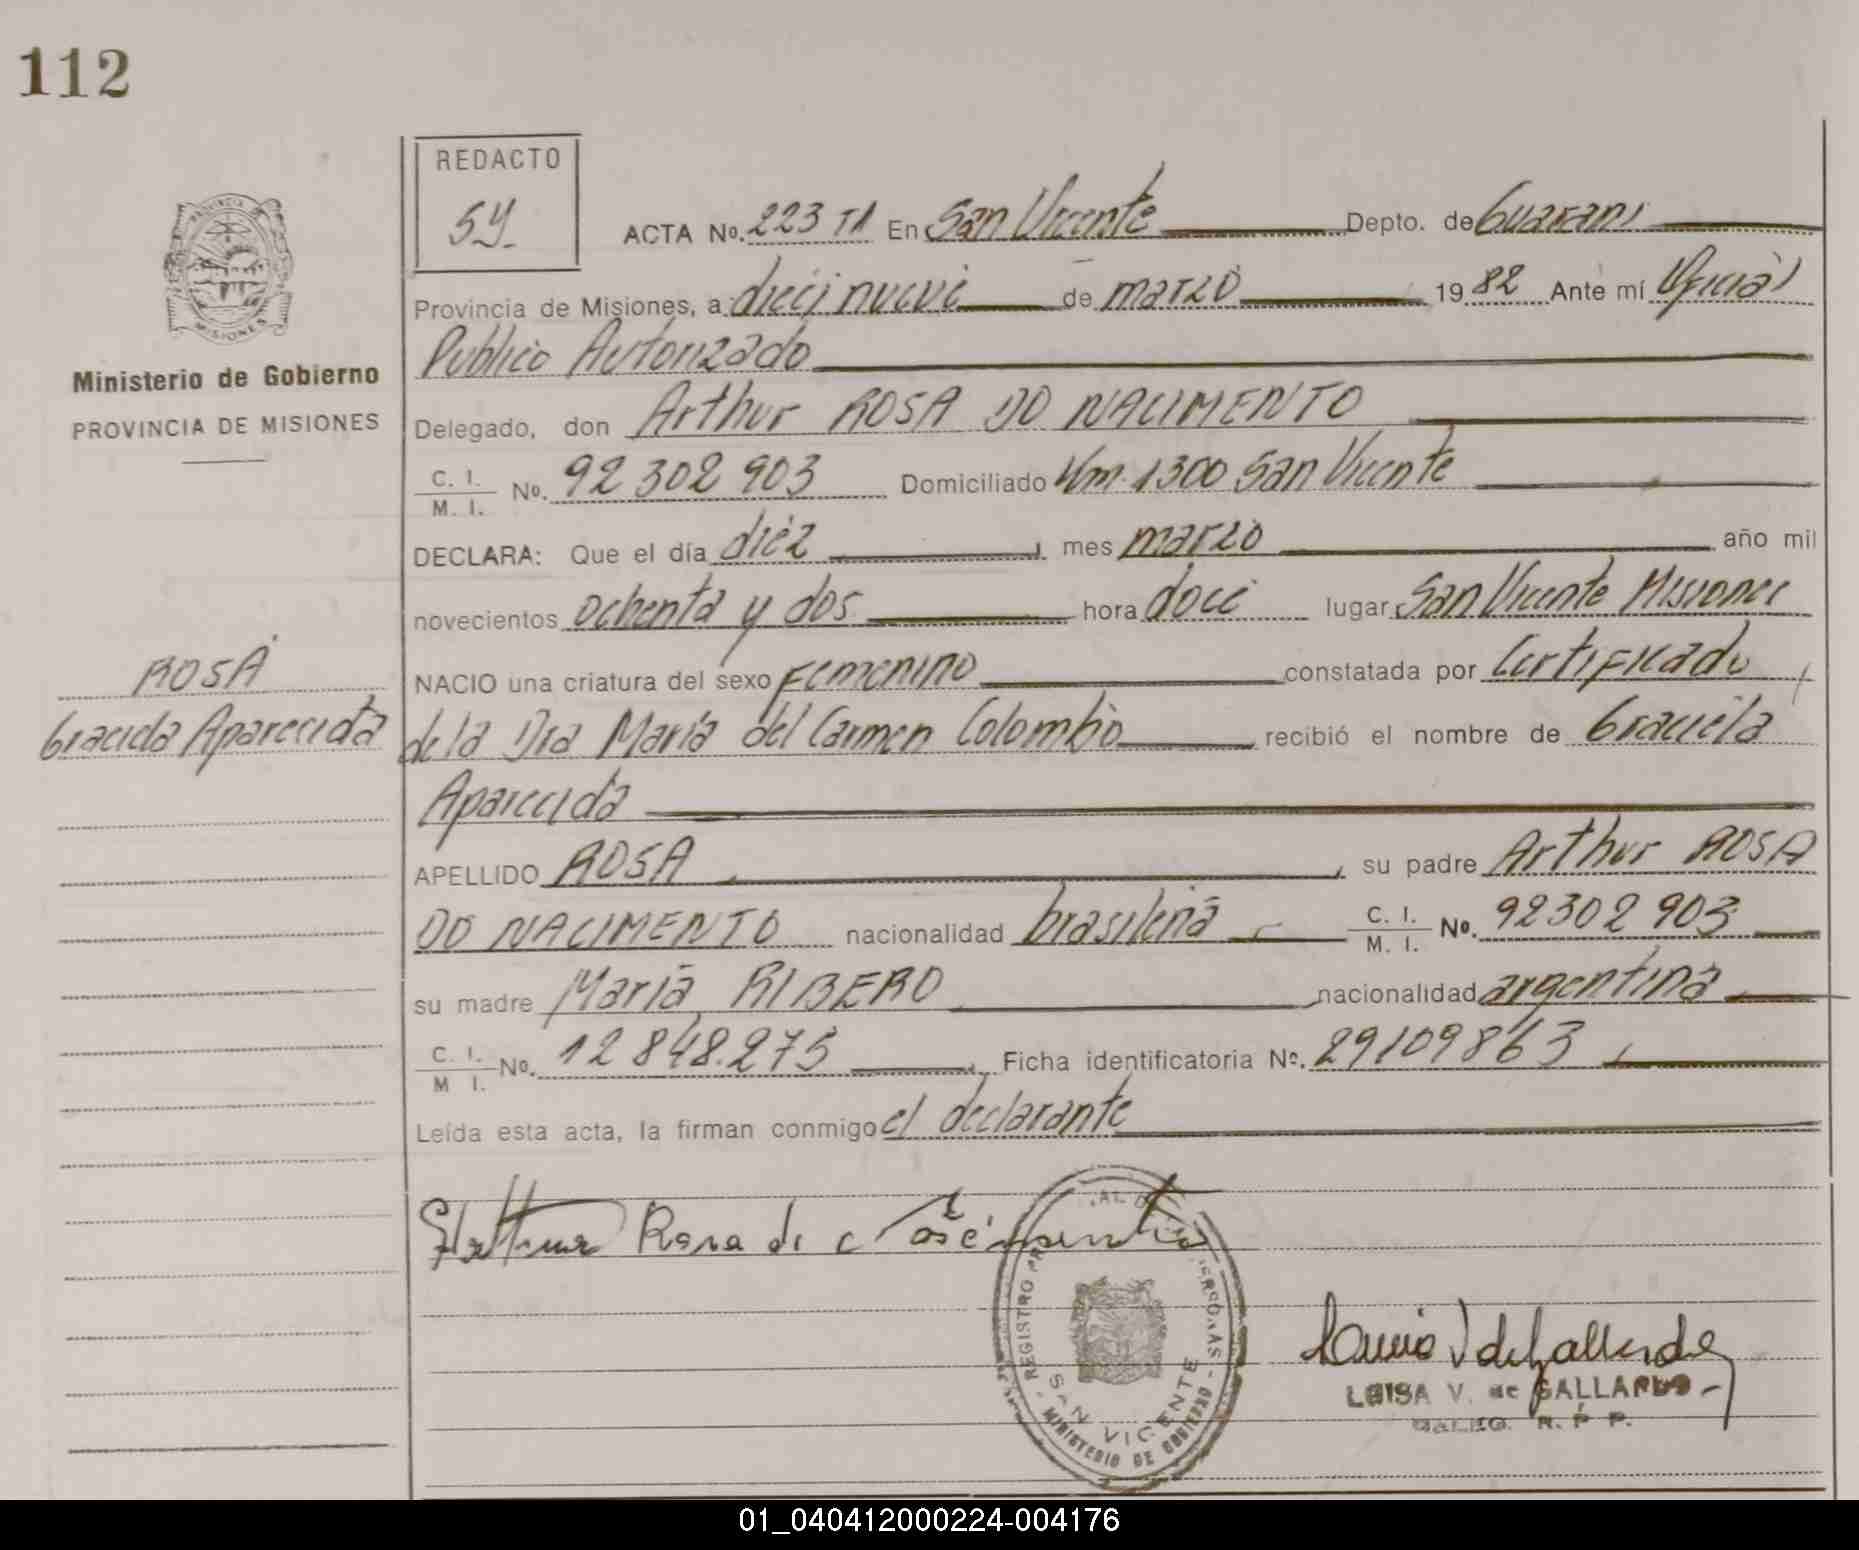 112
REDACTO
59
ACTA No. 223 TA En San Vicente Depto. de Guarani
Provincia de Misiones, a diecinueve de marzo 1982 Ante mí Oficial
Publico Autorizado
Delegado, don Arthur ROSA DO NACIMENTO
C. I.
M. I. No. 92 302 903 Domiciliado Km. 1300 San Vicente
DECLARA: Que el día diez mes marzo año mil
novecientos ochenta y dos hora doce lugar San Vicente Misiones
NACIO una criatura del sexo Femenino constatada por Certificado
de la Dra María del Carmen Colombo recibió el nombre de Graciela
Aparecida
APELLIDO ROSA, su padre Arthur ROSA
DO NACIMENTO nacionalidad brasileña C. I.
M. I. No. 92302 903
su madre María RIBERO nacionalidad argentina
C. I.
M I. No. 12 848.275, Ficha identificatoria No. 29109863
Leída esta acta, la firman conmigo el declarante
PROVINCIA DE
MISIONES
Ministerio de Gobierno
PROVINCIA DE MISIONES
ROSA
Graciela Aparecida
Rosa
REGISTRO PERSONAS
SAN VICENTE
MINISTERIO DE GOBIERNO
LUISA V. de GALLARDO
DALEG. R. P P.
01_040412000224-004176